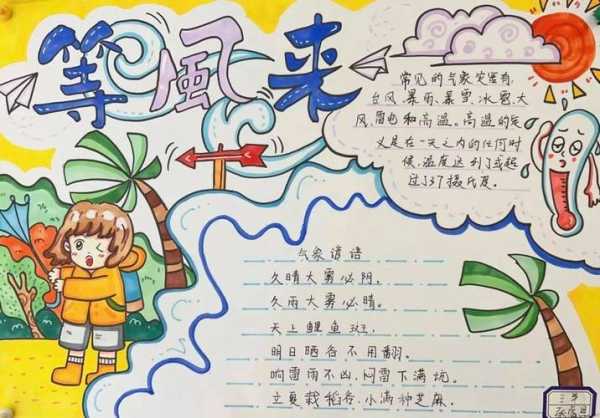 等風来
常见的气象灾害有
台风、暴雨、暴雪、冰雹、大
风、雷电和高温。高温的定
义是在一天之内的任何时
候,温度达到了或超
过了37摄氏度。
气象谚语
久晴大雾必阴,
久雨大雾必晴。
天上鲤鱼斑,
明日晒谷不用翻。
响雷雨不凶,闷雷下满坑
立夏栽稻谷,小满种芝麻